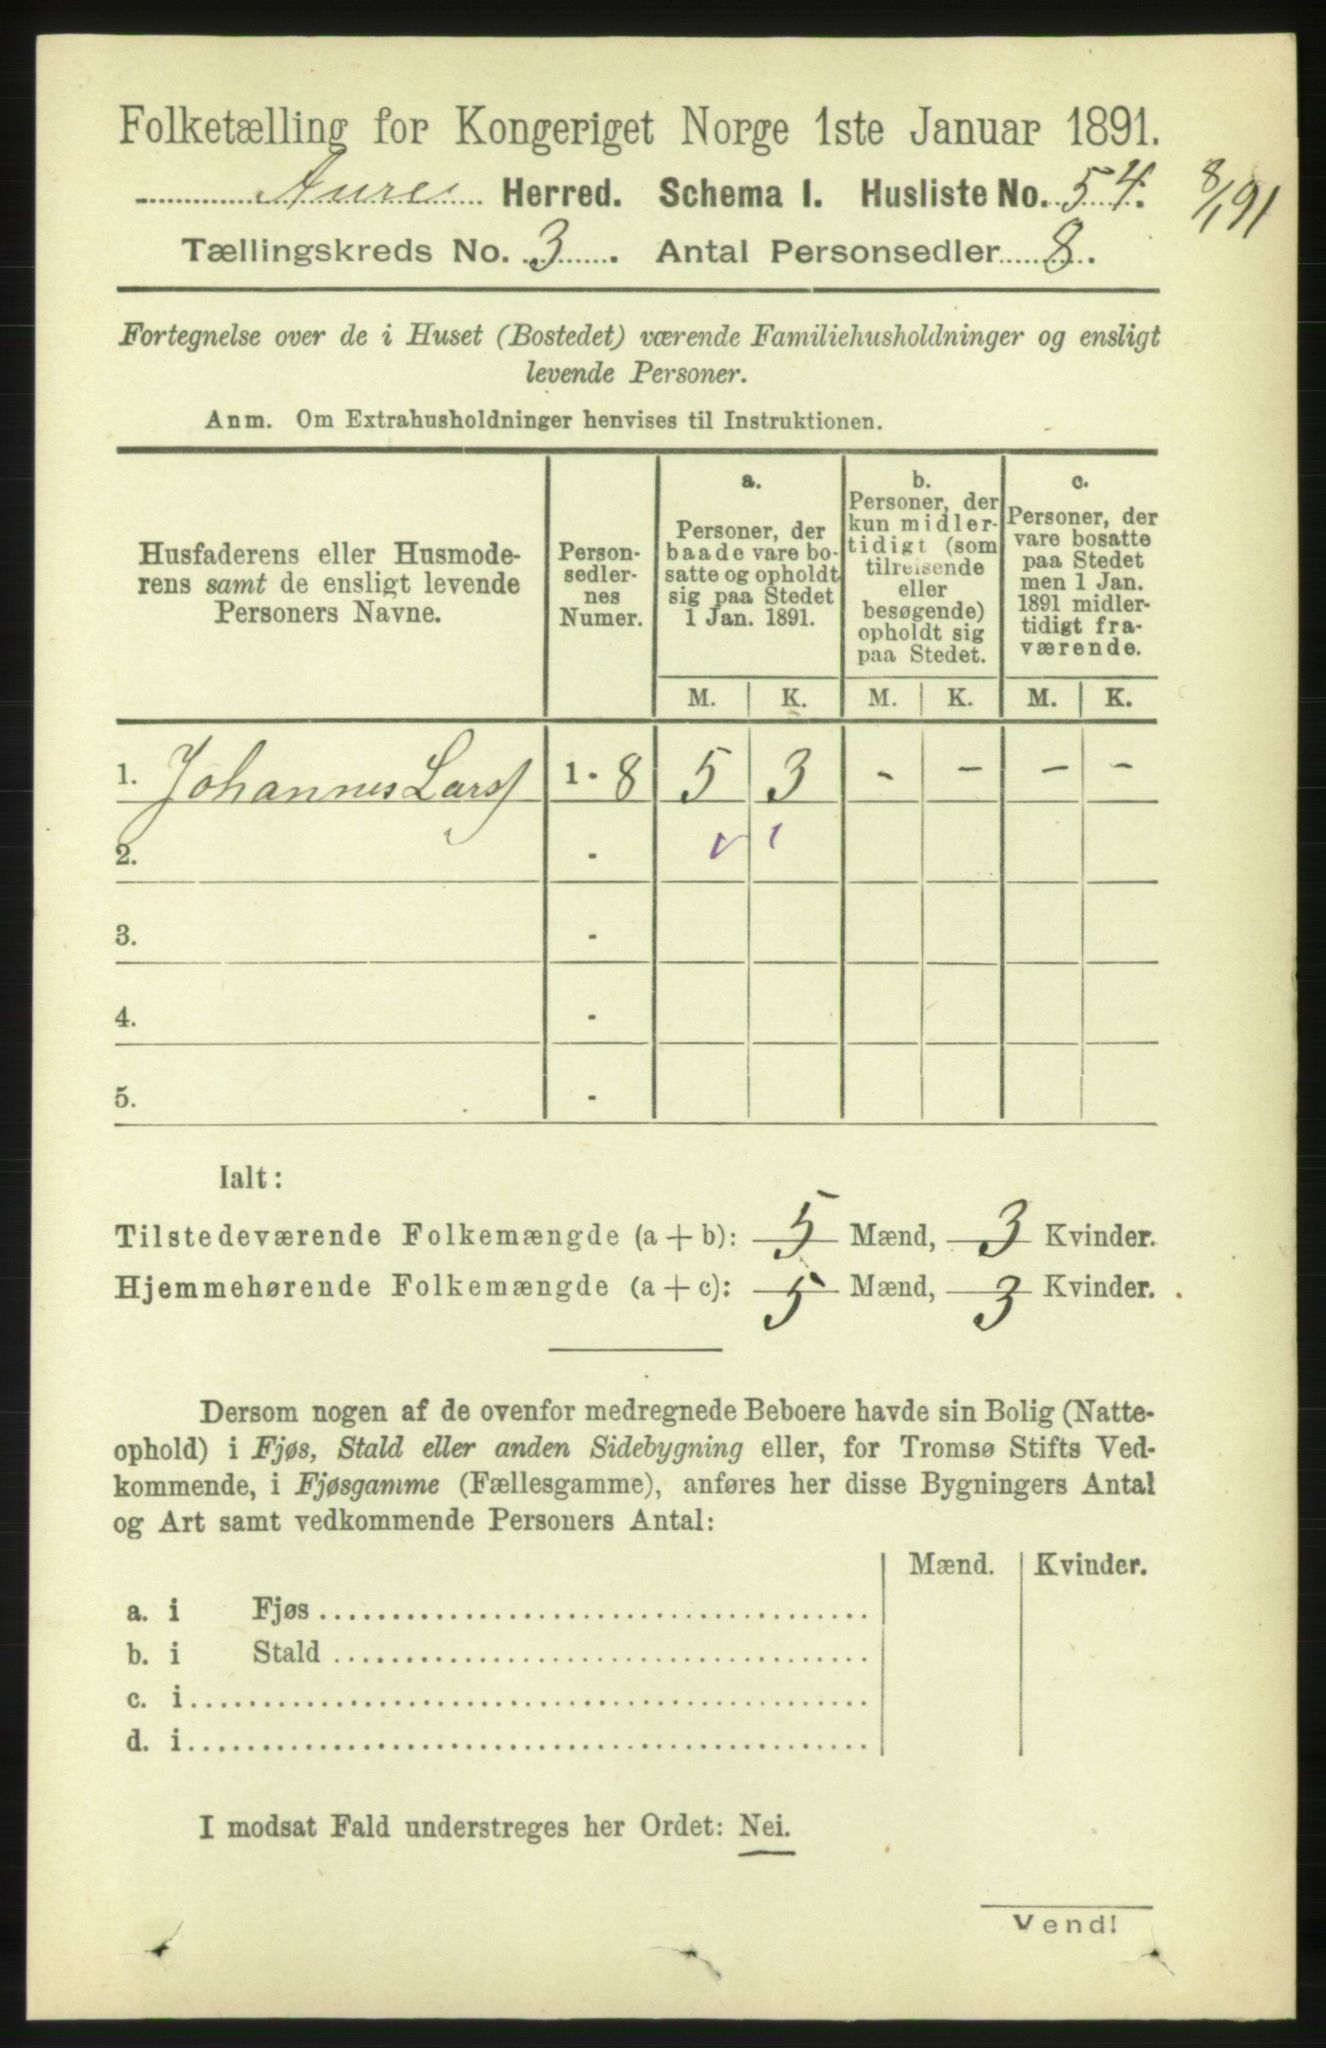 Folketælling for Kongeriget Norge 1ste Januar 1891.
Aure Herred. Schema I. Husliste No. 54. 8/1 91
Tællingskreds No. 3. Antal Personsedler 8.
Fortegnelse over de i Huset (Bostedet) værende Familiehusholdninger og ensligt
levende Personer.
Anm. Om Extrahusholdninger henvises til Instruktionen.
Husfaderens eller Husmode-
rens samt de ensligt levende
Personers Navne.
Person-
sedler-
nes
Numer.
a.
Personer, der
baade vare bo-
satte og opholdt
sig paa Stedet
1 Jan. 1891.
b.
Personer, der
kun midler-
tidigt (som
tilreisende
eller
besøgende)
opholdt sig
paa Stedet.
c.
Personer, der
vare bosatte
paa Stedet
men 1 Jan.
1891 midler-
tidigt fra-
værende.
M. K. M. K. M. K.
1. Johannes Lars 1 - 8 5 3 - - - -
2. -
3. -
4. -
5. -
Ialt:
Tilstedeværende Folkemængde (a + b): 5 Mænd, 3 Kvinder.
Hjemmehørende Folkemængde (a + c): 5 Mænd, 3 Kvinder.
Dersom nogen af de ovenfor medregnede Beboere havde sin Bolig (Natte-
ophold) i Fjøs, Stald eller anden Sidebygning eller, for Tromsø Stifts Ved-
kommende, i Fjøsgamme (Fællesgamme), anføres her disse Bygningers Antal
og Art samt vedkommende Personers Antal:
Mænd. Kvinder.
a. i Fjøs
b. i Stald
c. i
d. i
I modsat Fald understreges her Ordet: Nei.
Vend!